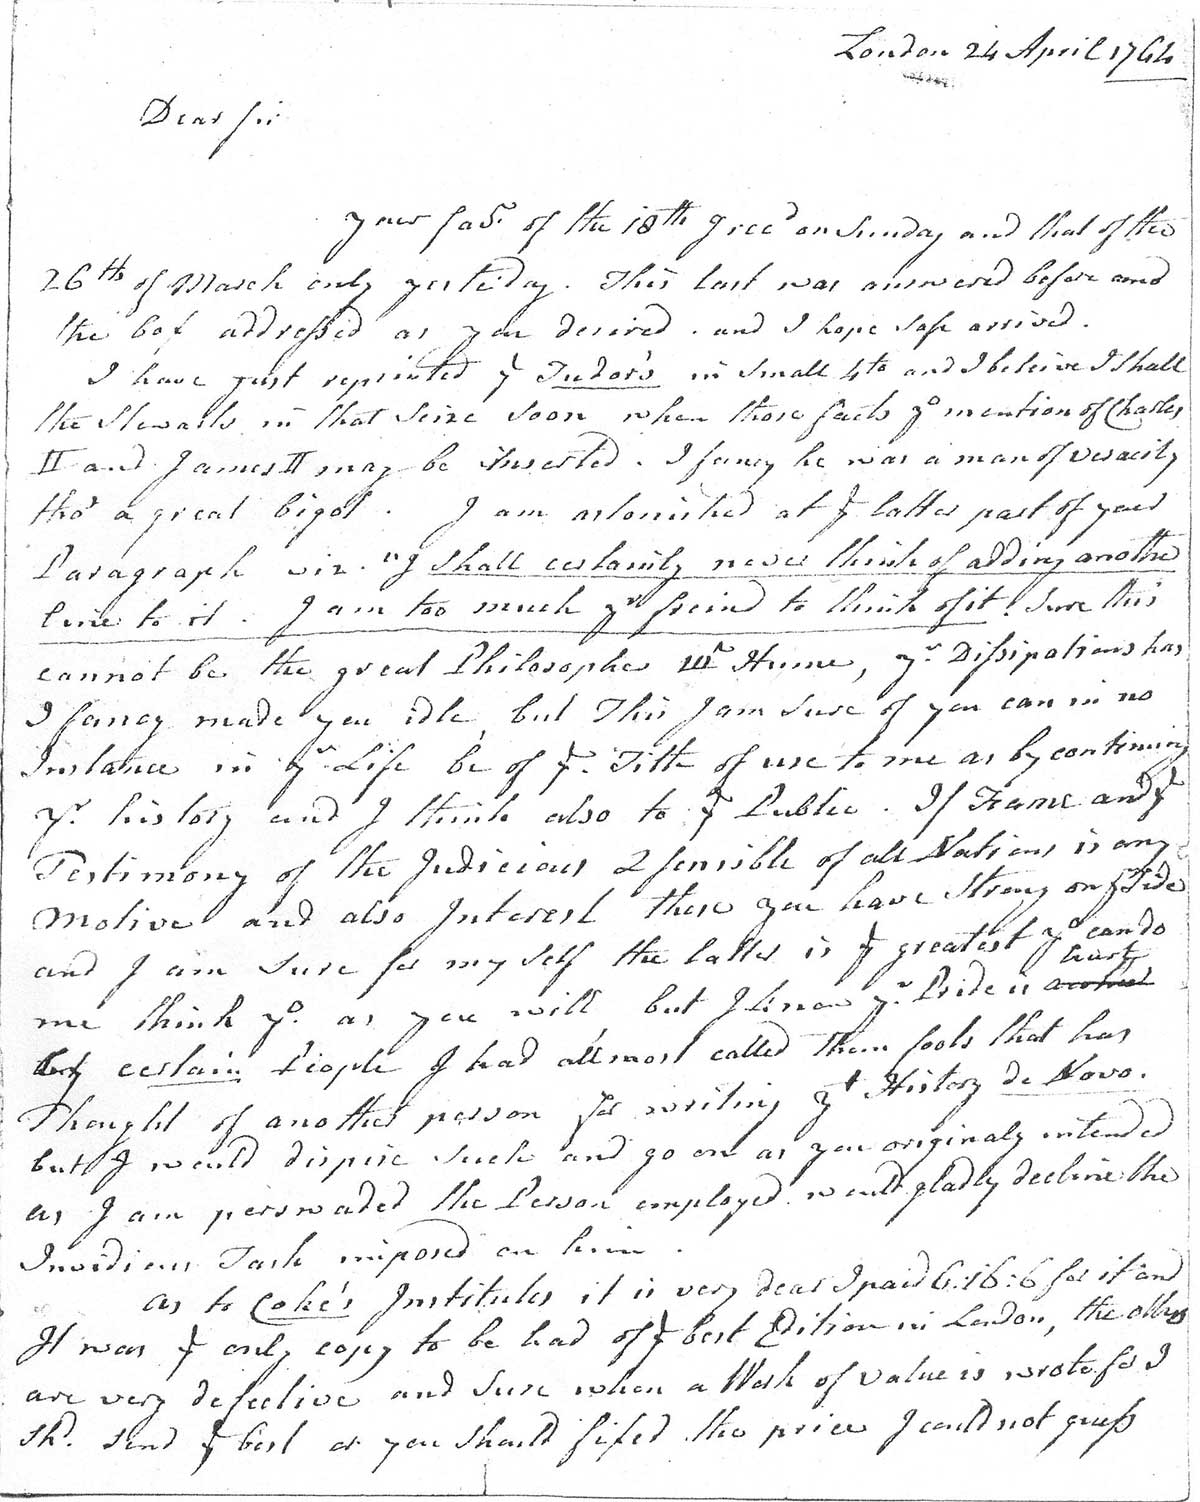 London 24 April 1764
Dear Sir
your favr. of the 18th I recd on Sunday and that of the
26th of March only yesterday. This last was answered before and
the box addressed as you desired. and I hope safe arrived.
I have just reprinted ye Tudor's in small 4to and I beleive I shall
the Stewarts in that Seize soon when those facts yo mention of Charles
II and James II may be inserted. I fancy he was a man of veracity
tho' a great bigot. I am astonished at ye latter part of your
Paragraph viz. "I shall certainly never think of adding another
line to it. I am too much yr freind to think of it! Sure this
cannot be the great Philosopher Mr Hume, yr. Dissipations has
I fancy made you idle, but This I am sure of you can in no
Instance in yr Life be of ye. Tith of use to me as by continuing
yr. history and I think also to ye Public. If Fame and ye
Testimony of the Judicious & sensible of all Nations is any
Motive and also Interest these you have Strong on ye Side
and I am sure for my self the latter is ye greatest yo can do
me think yo. as you will, but I know yr. Pride is hurt
by certain People I had allmost called them fools that has
Thought of another person for writing yt History de Novo.
but I would dispise such and go on as you originaly intended
as I am perswaded the Person employed would gladly decline the
Invidious Task imposed on him.
As to Coke's Institutes it is very dear I paid 6:16:6 for it and
It was ye only copy to be had of ye best Edition in London, the others
are very defective and sure when a Work of value is wrote for I
shd. send ye best as you should fixed the price I could not guess